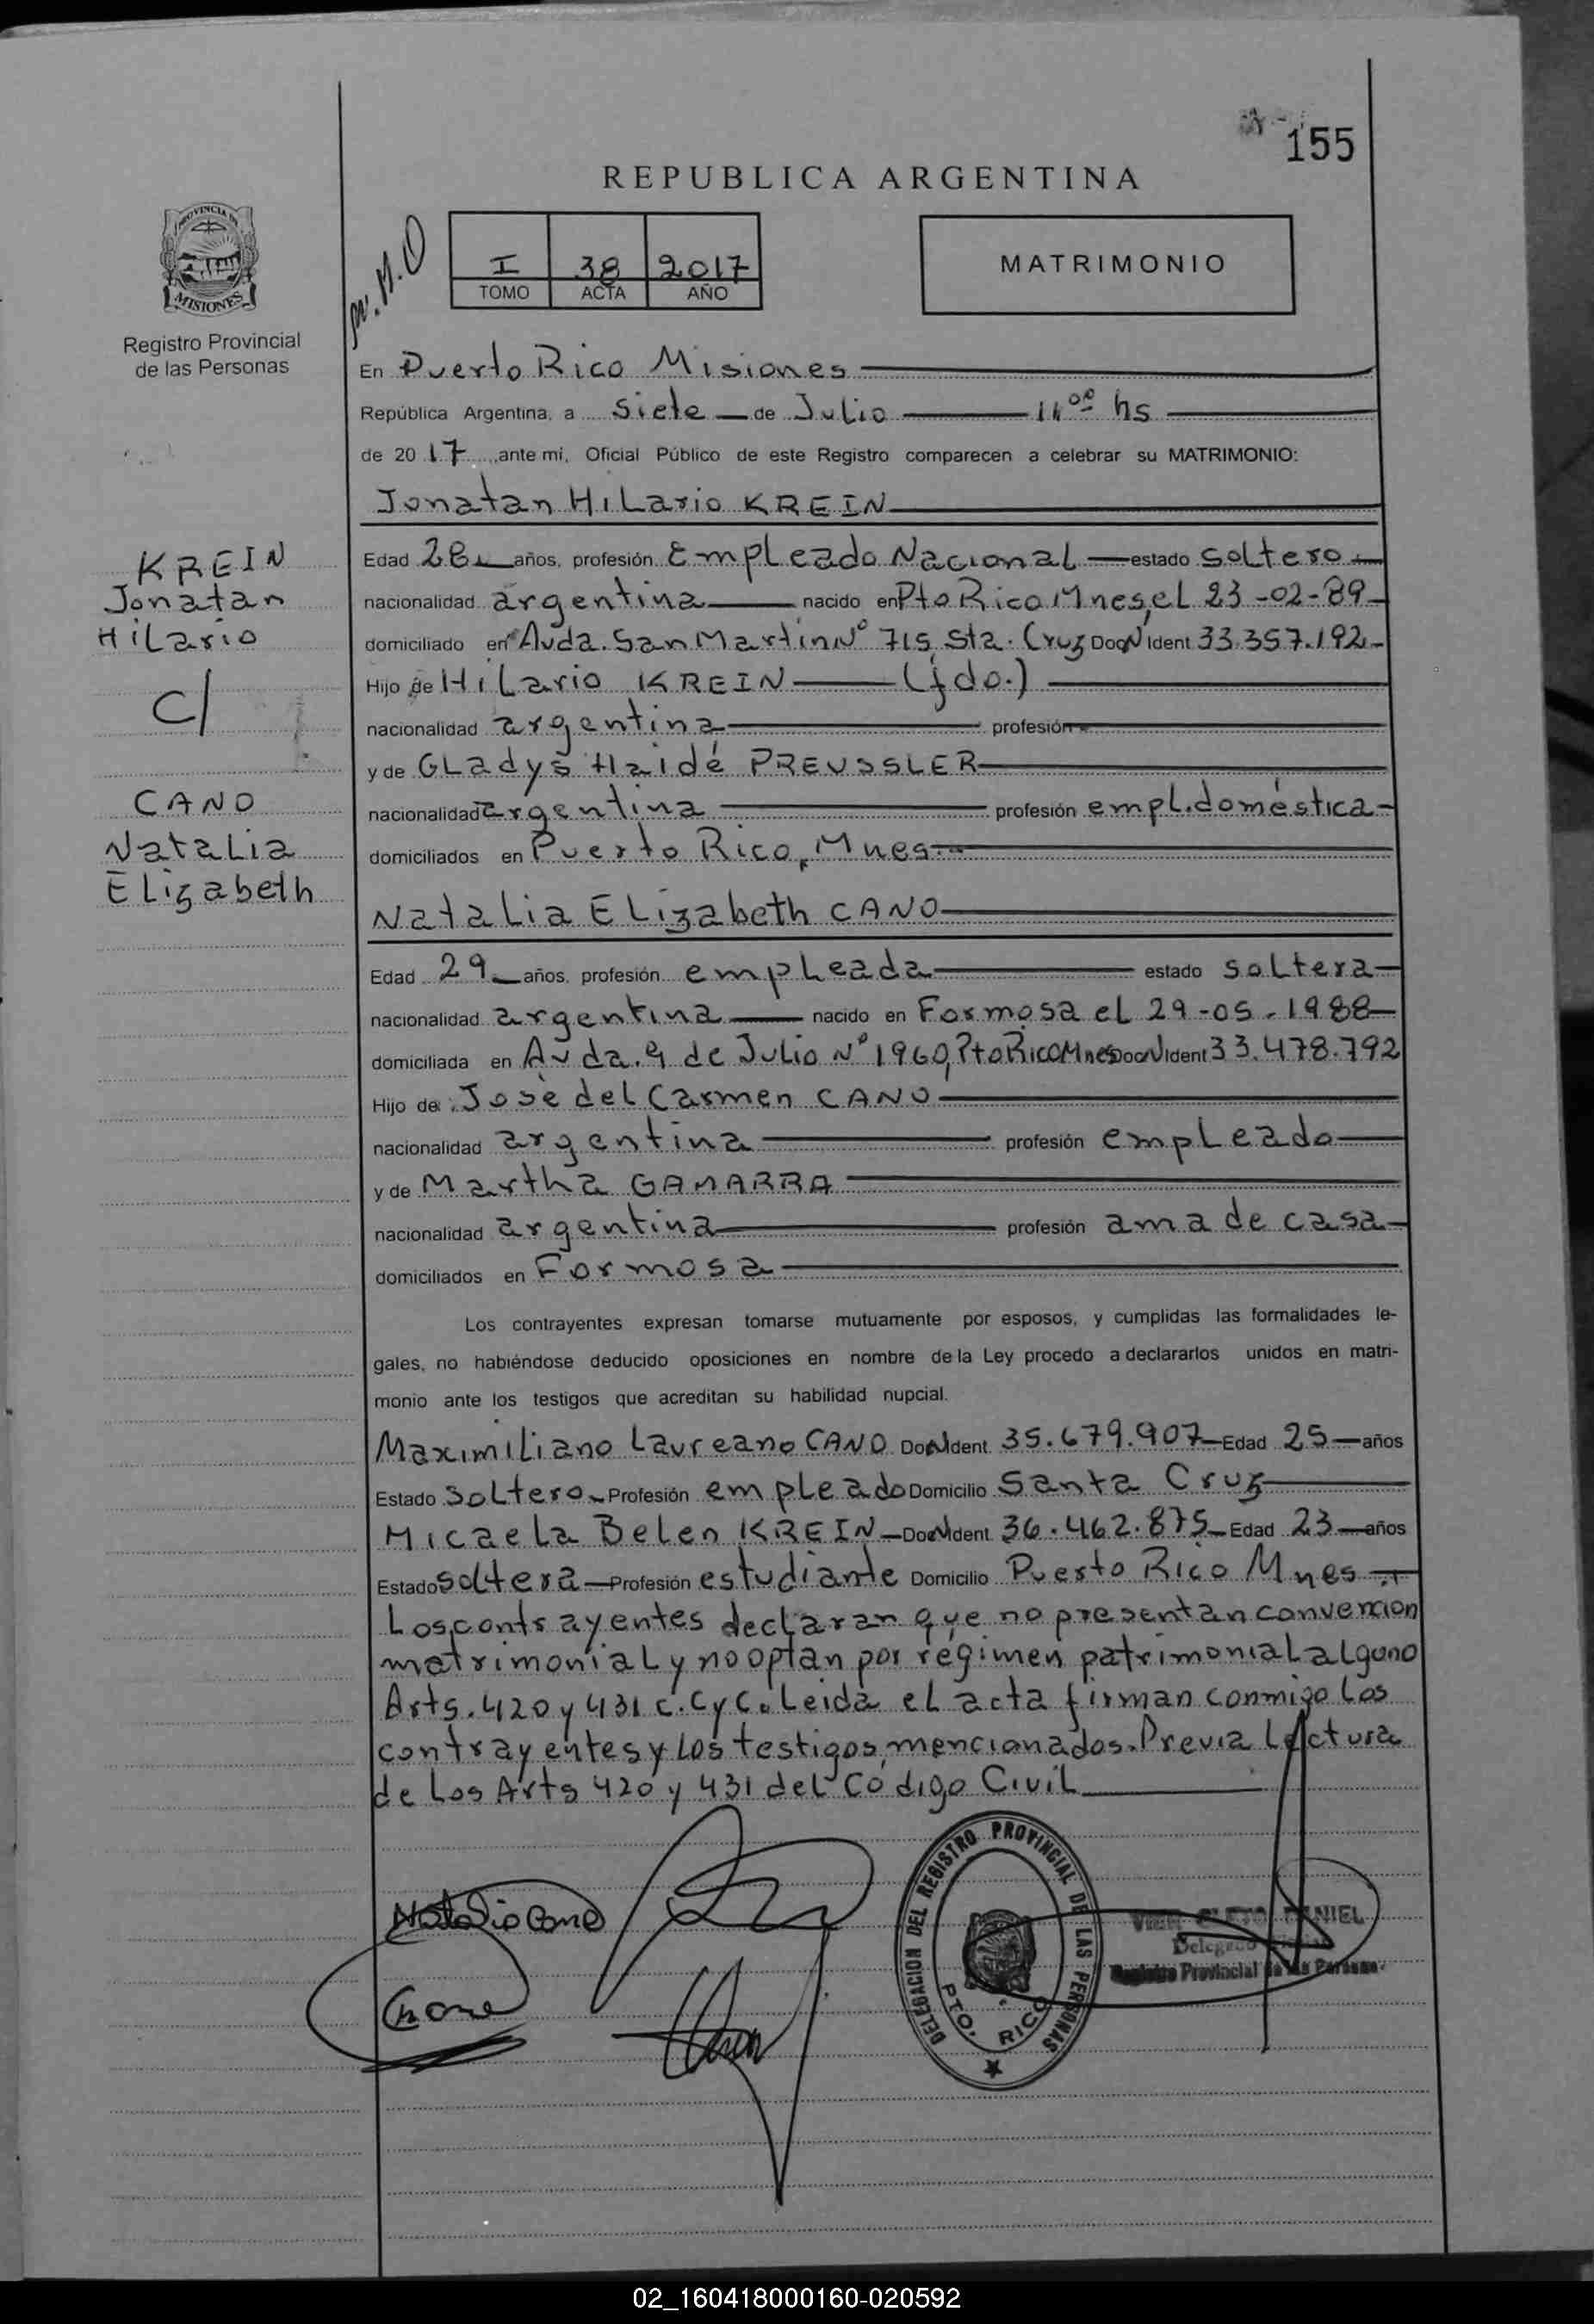 155
REPUBLICA ARGENTINA
PROVINCIA DE
MISIONES
Registro Provincial
de las Personas
I 38 2017
TOMO ACTA AÑO
MATRIMONIO
En Puerto Rico Misiones
República Argentina, a siete de Julio 11 00 hs
de 20 17 ,ante mí, Oficial Público de este Registro comparecen a celebrar su MATRIMONIO:
Jonatan Hilario KREIN
KREIN
Jonatan
Hilario
C/
CANO
Natalia
Elizabeth
Edad 28 años, profesión Empleado Nacional estado soltero
nacionalidad argentina nacido en Pto Rico Mnes, el 23-02-89
domiciliado en Avda. San Martin Nº 715, Sta. Cruz Doc N Ident 33.357.192
Hijo de Hilario KREIN (fdo.)
nacionalidad argentina profesión
y de Gladys Haidé PREUSSLER
nacionalidad argentina profesión empl. doméstica
domiciliados en Puerto Rico, Mnes
Natalia Elizabeth CANO
Edad 29 años, profesión empleada estado soltera
nacionalidad argentina nacido en Formosa el 29-05-1988
domiciliada en Avda. 9 de Julio Nº 1960, Pto Rico Mnes Doc N Ident 33.478.792
Hijo de José del Carmen CANO
nacionalidad argentina profesión empleado
y de Martha GAMARRA
nacionalidad argentina profesión ama de casa
domiciliados en Formosa
Los contrayentes expresan tomarse mutuamente por esposos, y cumplidas las formalidades le-
gales, no habiéndose deducido oposiciones en nombre de la Ley procedo a declararlos unidos en matri-
monio ante los testigos que acreditan su habilidad nupcial.
Maximiliano Laureano CANO Doc N Ident 35.679.907 Edad 25 años
Estado soltero Profesión empleado Domicilio Santa Cruz
Micaela Belen KREIN Doc N Ident 36.462.875 Edad 23 años
Estado soltera Profesión estudiante Domicilio Puerto Rico Mnes
Los contrayentes declaran que no presentan convencion
matrimonial y no optan por régimen patrimonial alguno
Arts. 420 y 431 C.C y C. Leida el acta firman conmigo los
contrayentes y los testigos mencionados. Previa lectura
de los Arts 420 y 431 del Código Civil
Natalia Cano
DELEGACION DEL REGISTRO PROVINCIAL DE LAS PERSONAS
PTO. RICO
DANIEL
Registro Provincial de las Personas
02_160418000160-020592